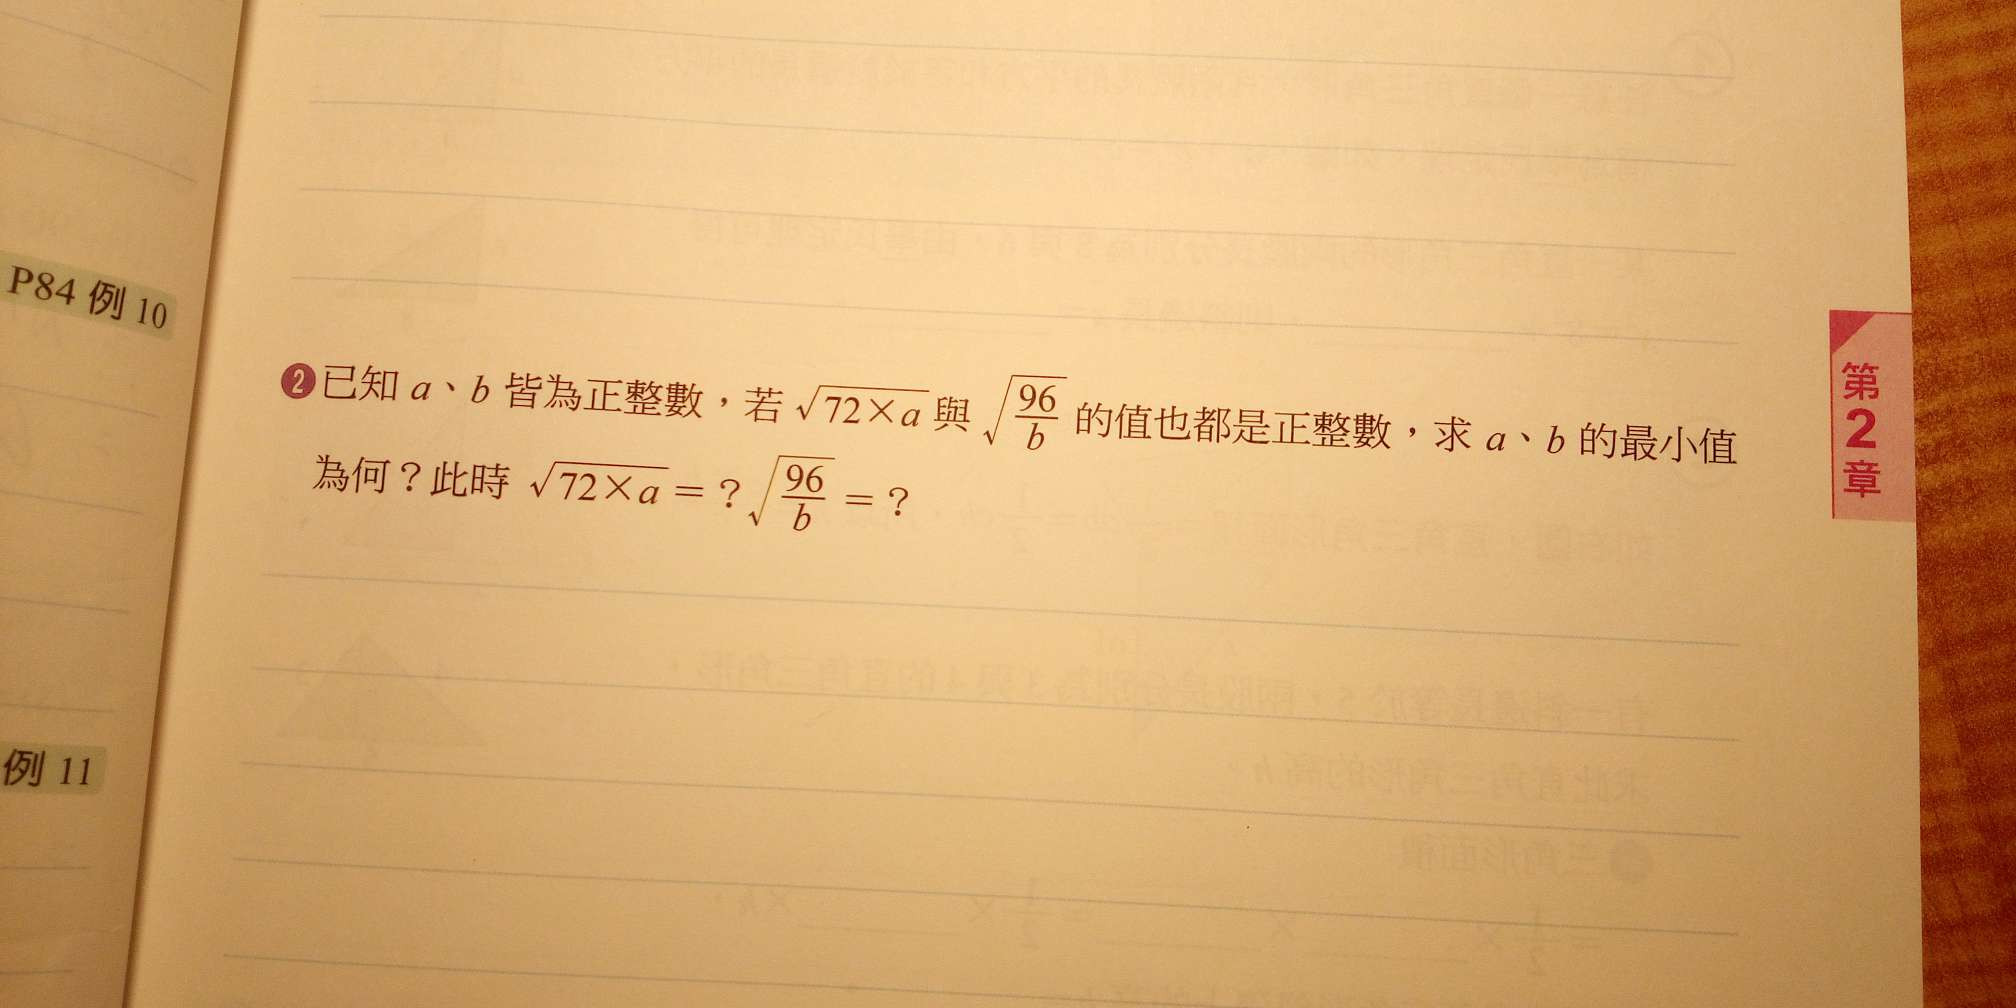 P84 例 10
❷已知 a、b 皆為正整數，若 √72×a 與 √96/b 的值也都是正整數，求 a、b 的最小值
為何？此時 √72×a＝？√96/b＝？
第2章
例 11